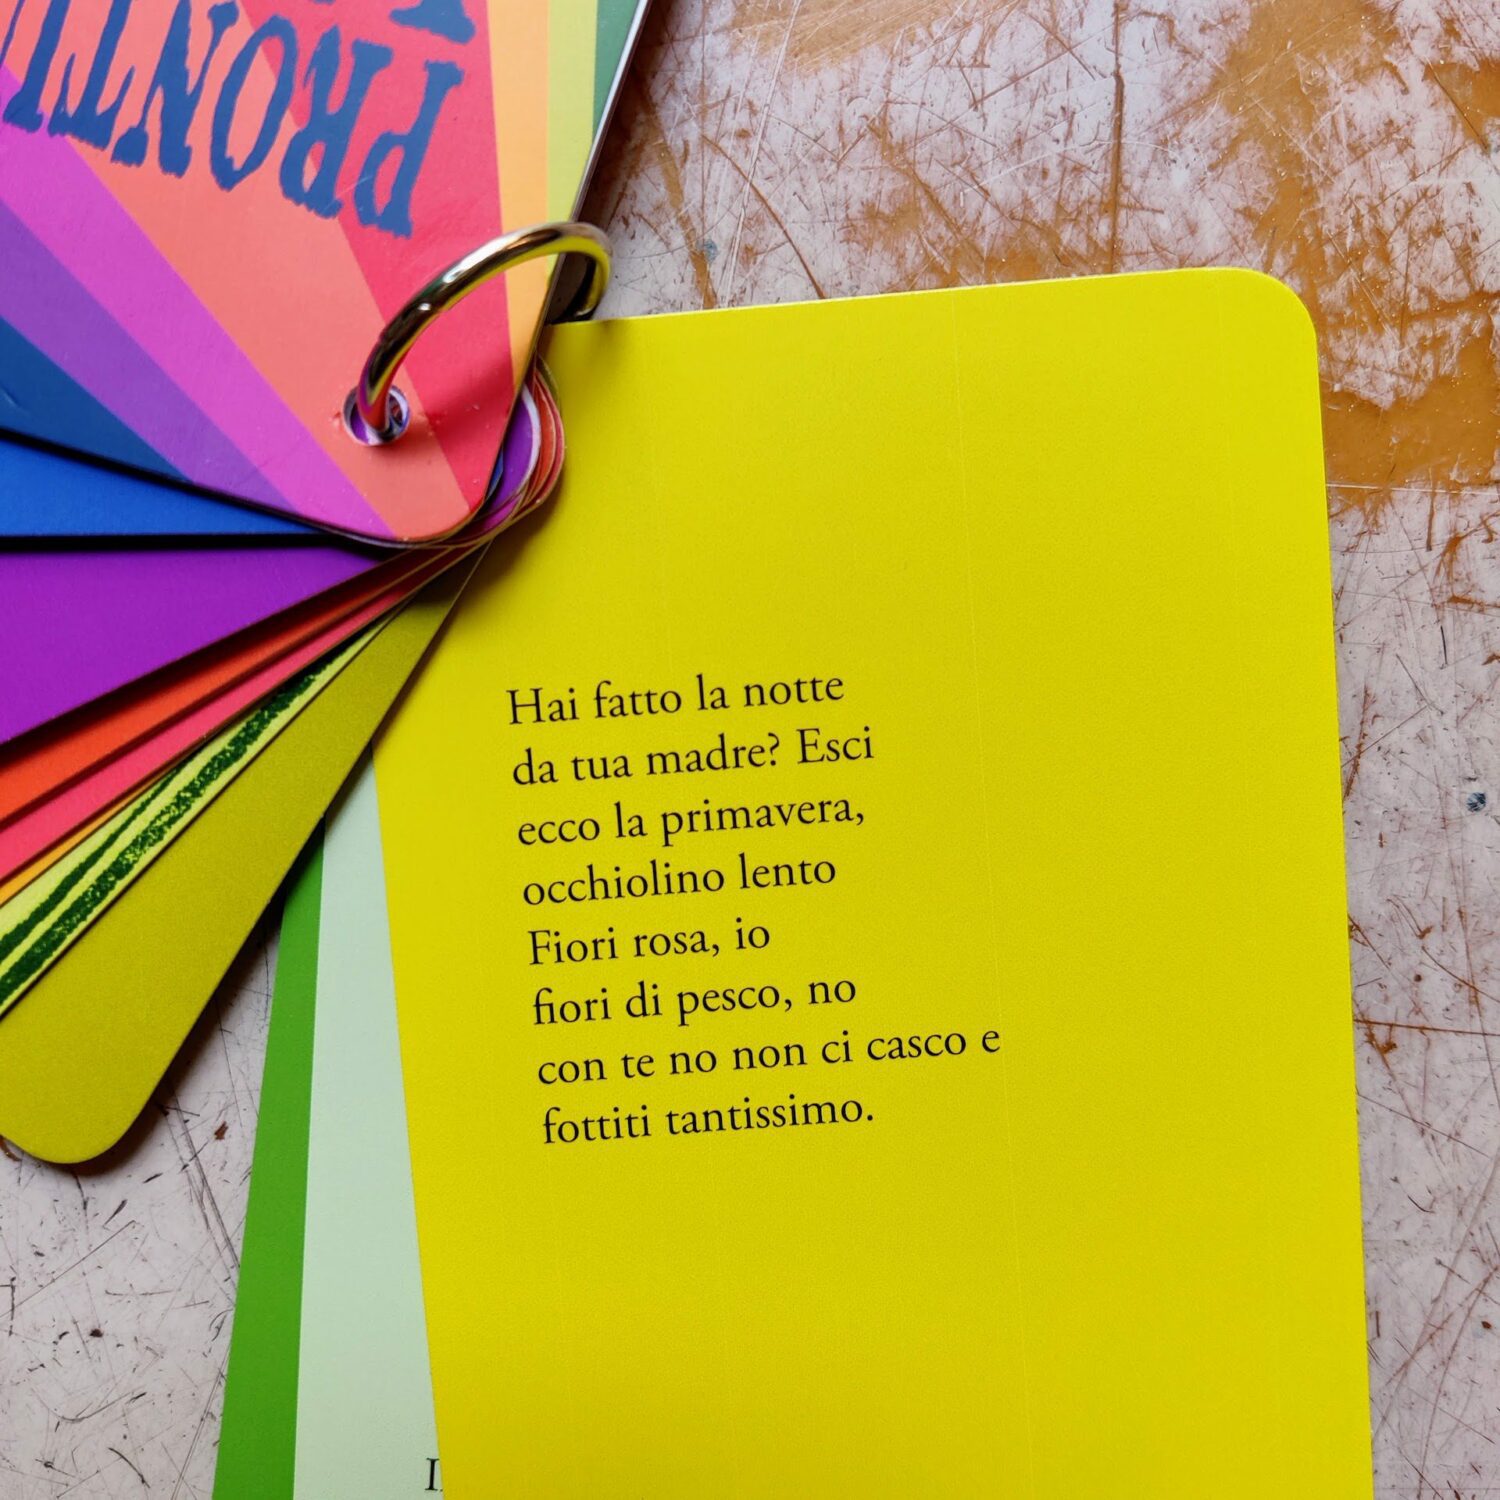 Hai fatto la notte
da tua madre? Esci
ecco la primavera,
occhiolino lento
Fiori rosa, io
fiori di pesco, no
con te no non ci casco e
fottiti tantissimo.